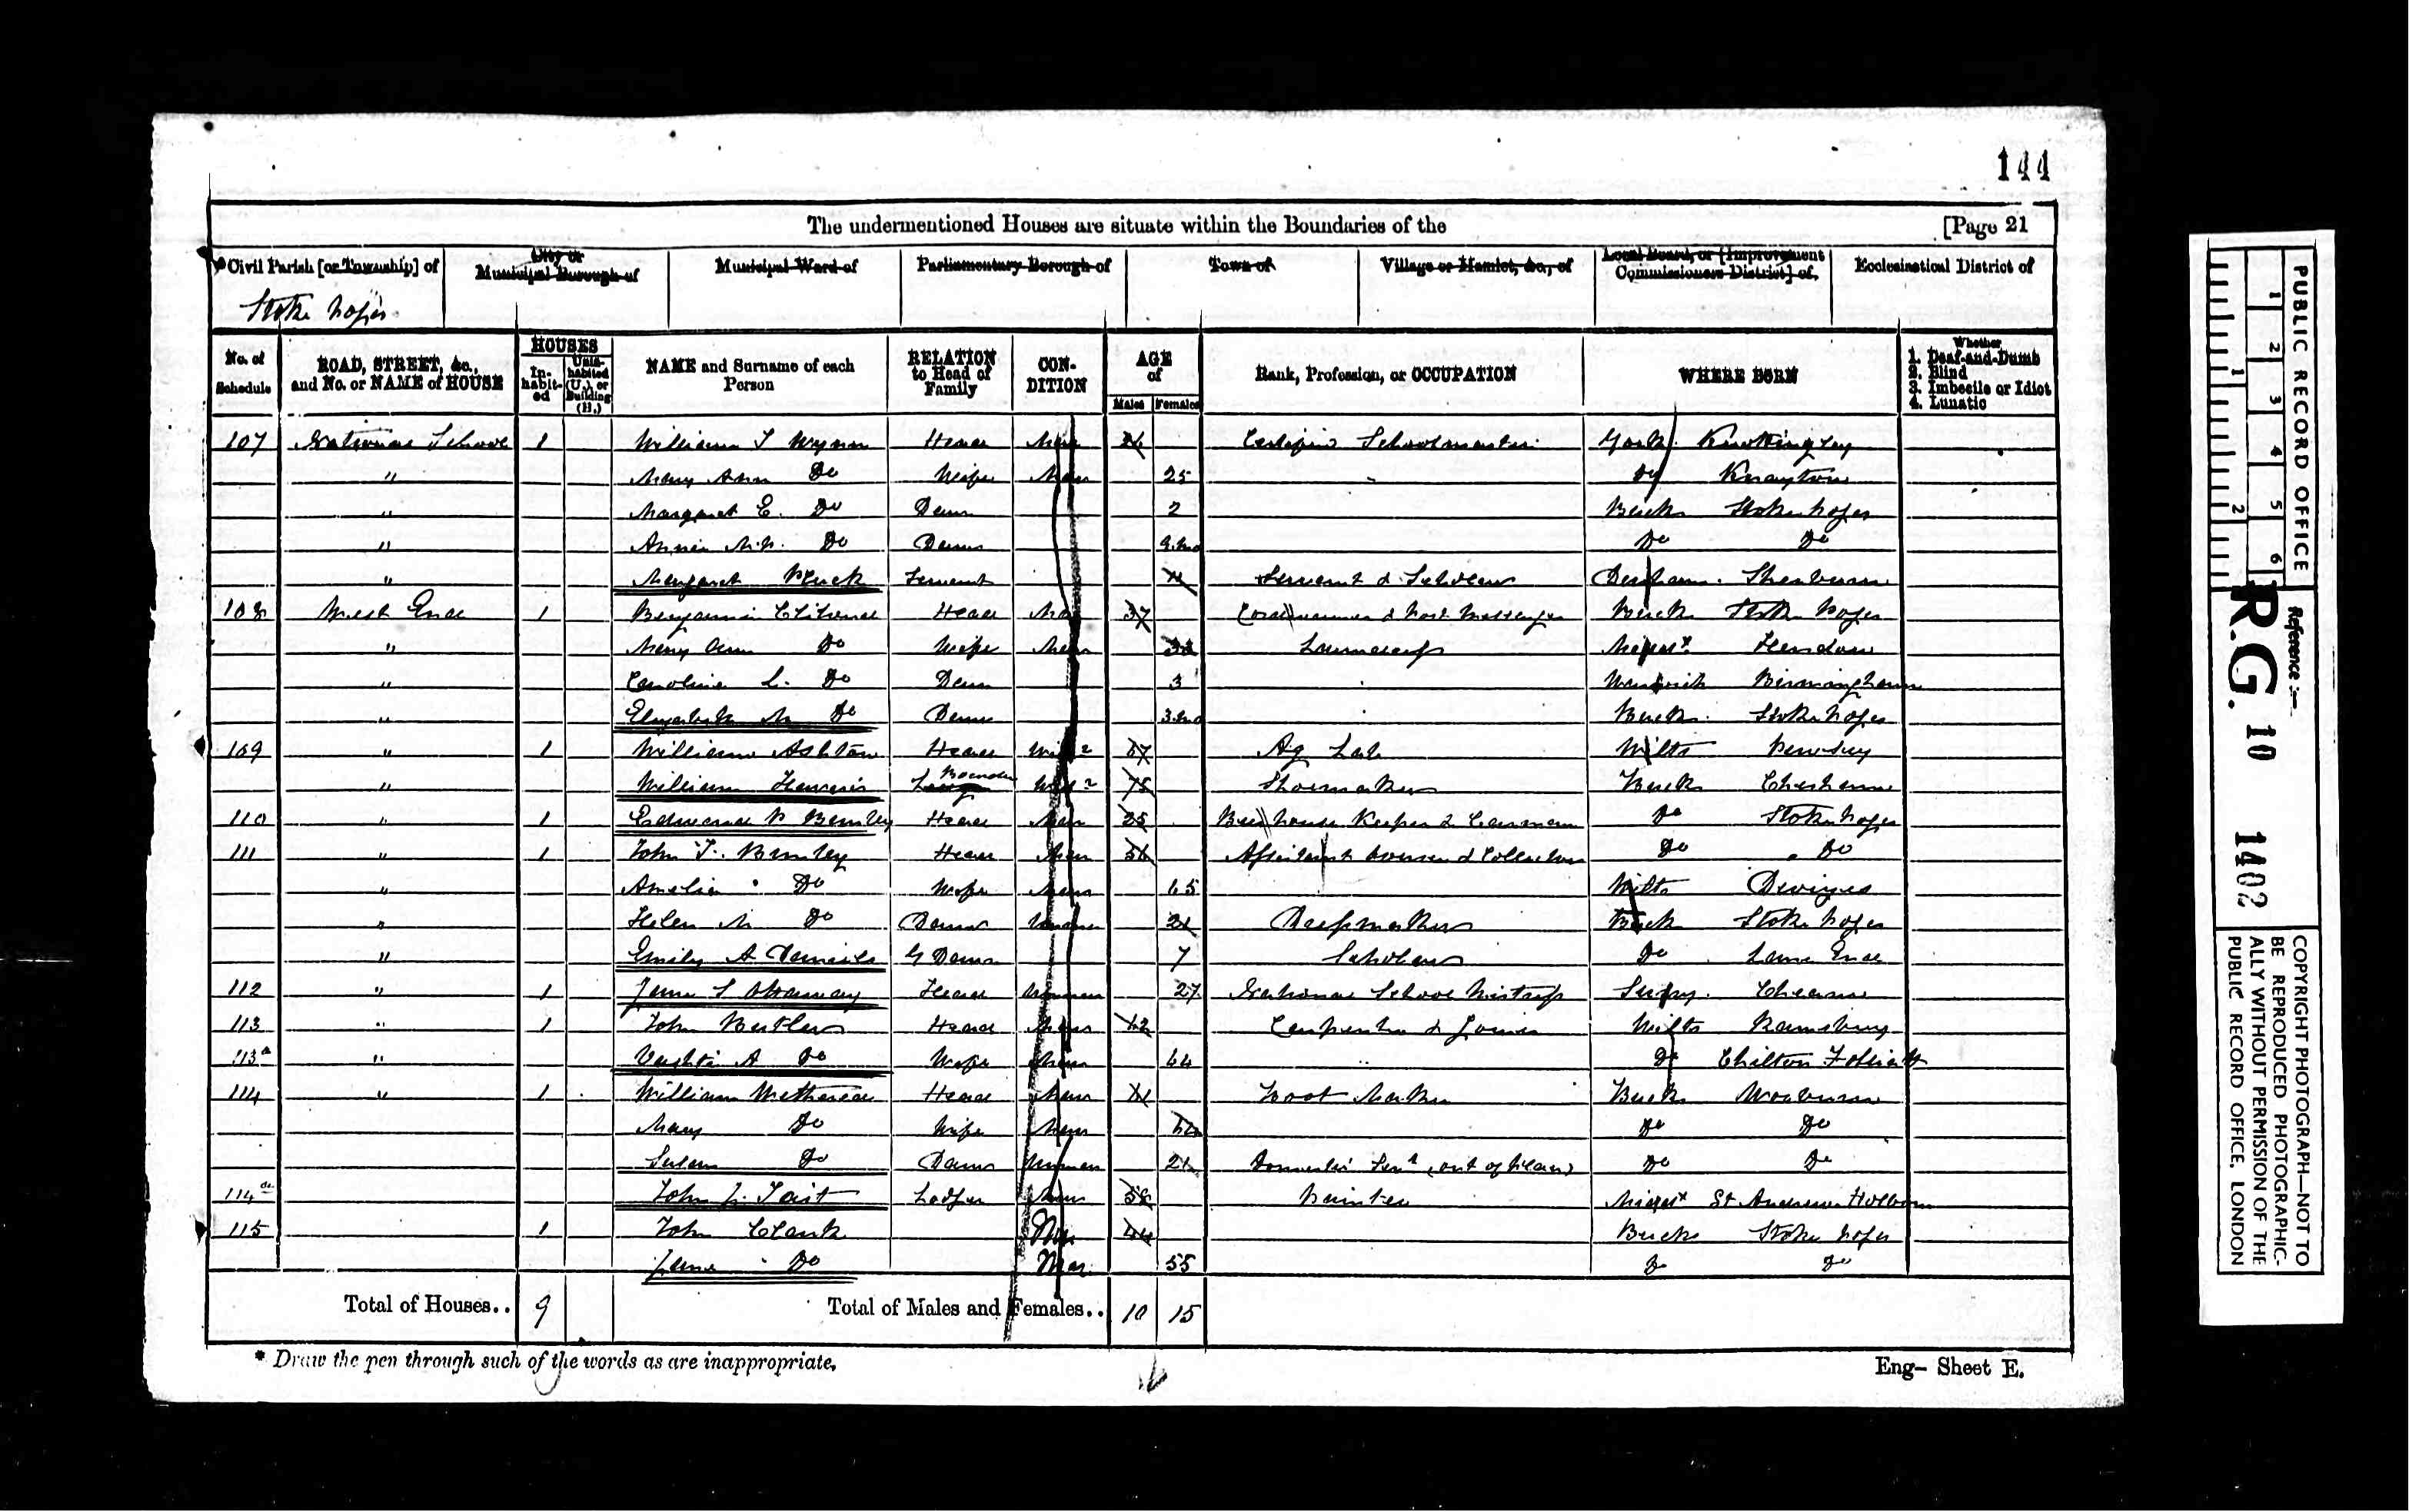 144
The undermentioned Houses are situate within the Boundaries of the [Page 21
Civil Parish [or Township] of City or Municipal Borough of Municipal Ward of Parliamentary Borough of Town of Village or Hamlet, &c., of Local Board, or [Improvement Commissioners District] of Ecclesiastical District of
Stoke Poges
No. of Schedule ROAD, STREET, &c., and No. or NAME of HOUSE HOUSES In-habit-ed Unin-habited (U.), or Building (B.) NAME and Surname of each Person RELATION to Head of Family CON-DITION AGE of Males Females Rank, Profession, or OCCUPATION WHERE BORN Whether 1. Deaf-and-Dumb 2. Blind 3. Imbecile or Idiot 4. Lunatic
107 National School 1 William S Wynn Head Mar Certified Schoolmaster York Knottingley
" Mary Ann Do Wife Mar 25 Do Knayton
" Margaret E. Do Daur 2 Bucks Stoke Poges
" Annie Do Daur 9 mo Do Do
" Margaret Servant 11 Servant & Scholar Durham Sherburn
108 West End 1 Benjamin Head Mar 37 Cordwainer & Post Messenger Bucks Stoke Poges
" Mary Ann Do Wife Mar Laundress Middsx Hendon
" Caroline L. Do Daur 3 Warwick Birmingham
" Elizabeth M Do Daur 3 mo Bucks Stoke Poges
109 " 1 William Ashton Head 67 Ag Lab Wilts Pewsey
" William Boarder 75 Shoemaker Bucks Chesham
110 " 1 Edmund P Bramley Head Mar 25 Beerhouse Keeper & Carman Do Stoke Poges
111 " 1 John T. Bramley Head Mar 56 Assistant Overseer & Collector Do Do
" Amelia Do Wife Mar 65 Wilts Devizes
" Helen M Do Daur Unmar 21 Dressmaker Bucks Stoke Poges
" Emily A Daniels G Daur 7 Scholar Do Lane End
112 " 1 Jane S Head Unmar 27 National School Mistress Surrey Cheam
113 " 1 John Butler Head Mar 62 Carpenter & Joiner Wilts Ramsbury
113a " Vashti A Do Wife Mar 64 Do Chilton Folliatt
114 " 1 William Wethered Head Mar Boot Maker Bucks Wooburn
Mary Do Wife Mar Do Do
Susan Do Daur Unmar 21 Domestic Servt (out of place) Do Do
114a John L. Tait Lodger Mar 58 Painter Middsx St Andrew Holborn
115 1 John Clark Mar 44 Bucks Stoke Poges
Jane Do Mar 55 Do Do
Total of Houses.. 9 Total of Males and Females.. 10 15
* Draw the pen through such of the words as are inappropriate.
Eng— Sheet E.
PUBLIC RECORD OFFICE
1 2 3 4 5 6
1 2
Reference :-
R.G. 10 1402
COPYRIGHT PHOTOGRAPH—NOT TO
BE REPRODUCED PHOTOGRAPHIC-
ALLY WITHOUT PERMISSION OF THE
PUBLIC RECORD OFFICE, LONDON